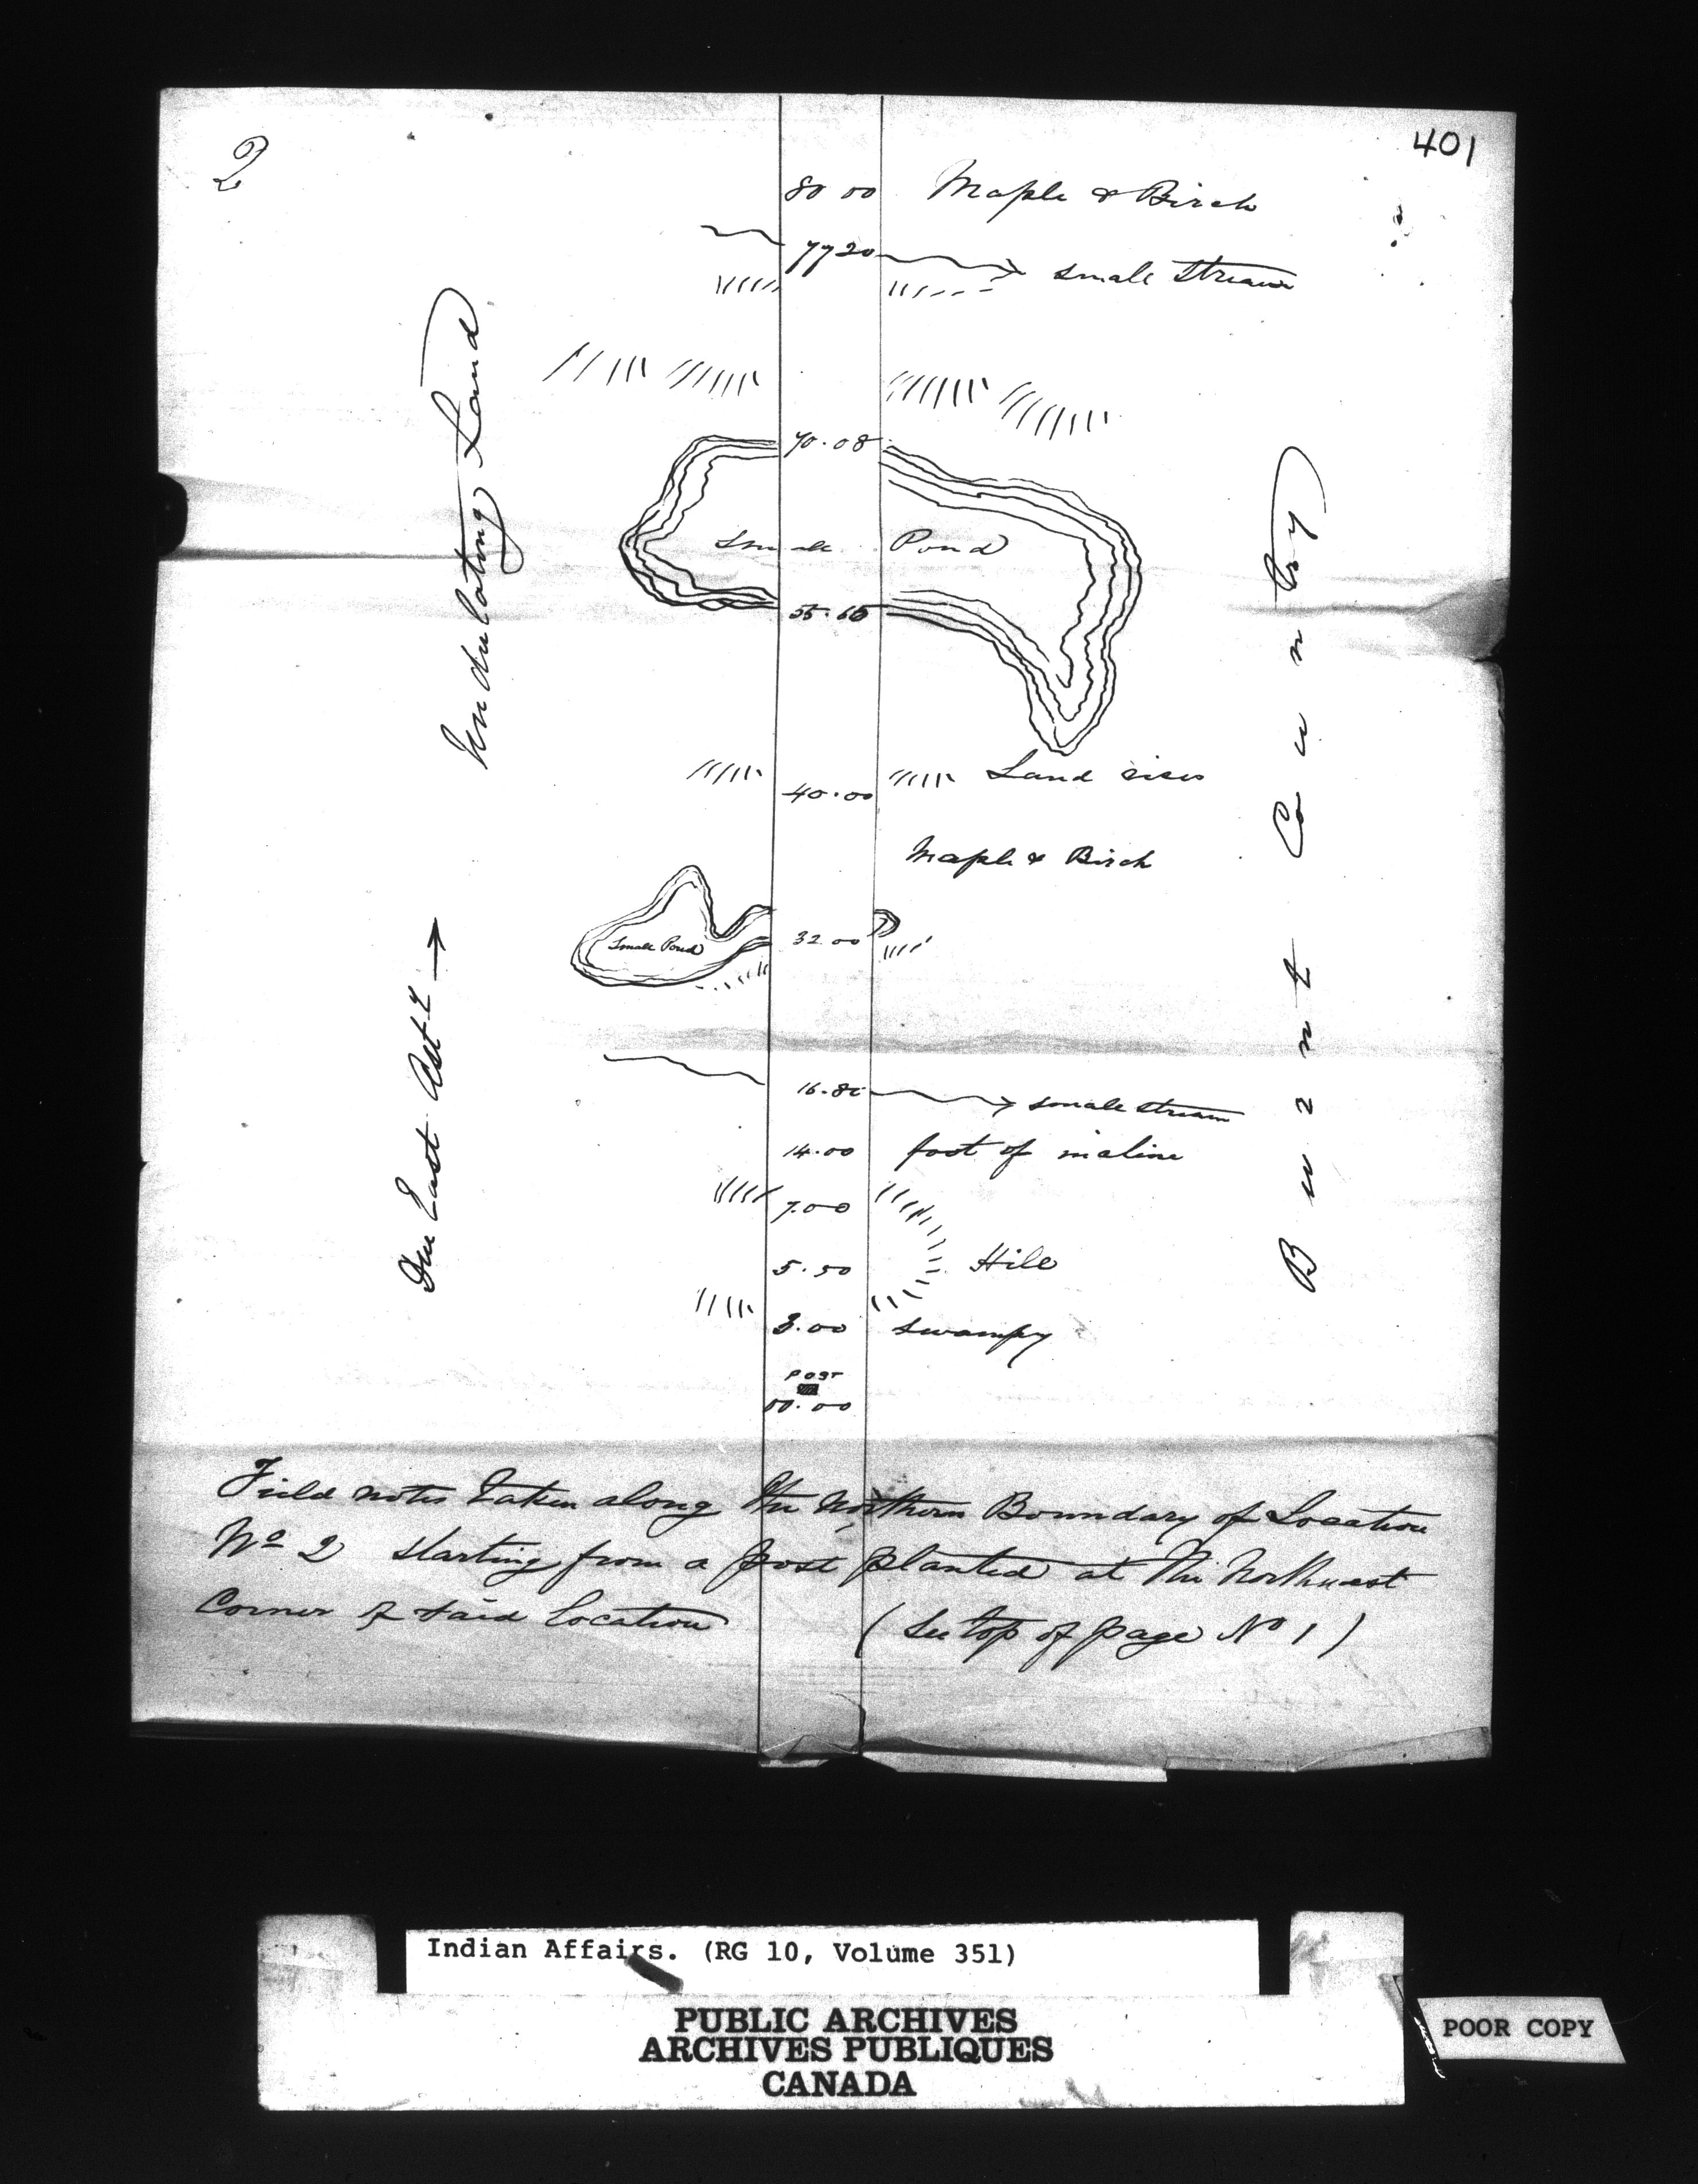 2
401
80 00 Maple & Birch
77 20 small stream
Undulating Land
70.08
Small Pond
55.65
Land rises
40.00
Maple & Birch
Small Pond
32.00
Due East Ast.y →
Burnt Country
16.80 small stream
14.00 foot of incline
7.00
5.50 Hill
3.00 swampy
POST
00.00
Field notes taken along the Northern Boundary of Location
No 2 starting from a post planted at the Northwest
Corner of said Location (See top of page No 1)
Indian Affairs. (RG 10, Volume 351)
PUBLIC ARCHIVES
ARCHIVES PUBLIQUES
CANADA
POOR COPY